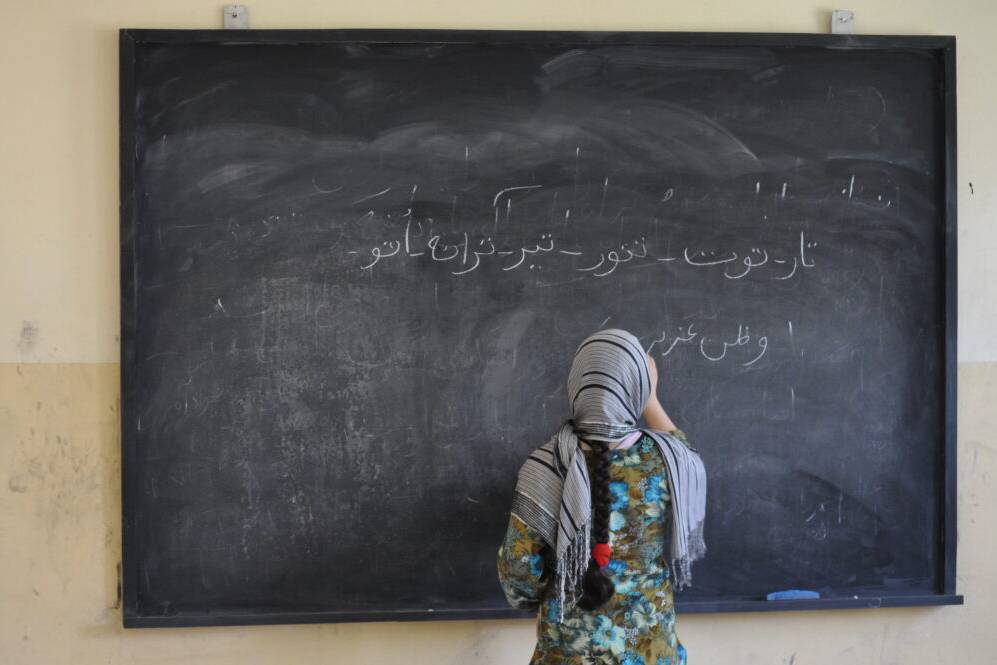 تار - توت - تنور - تیر - ترانه - اتو -
وطن عزیز